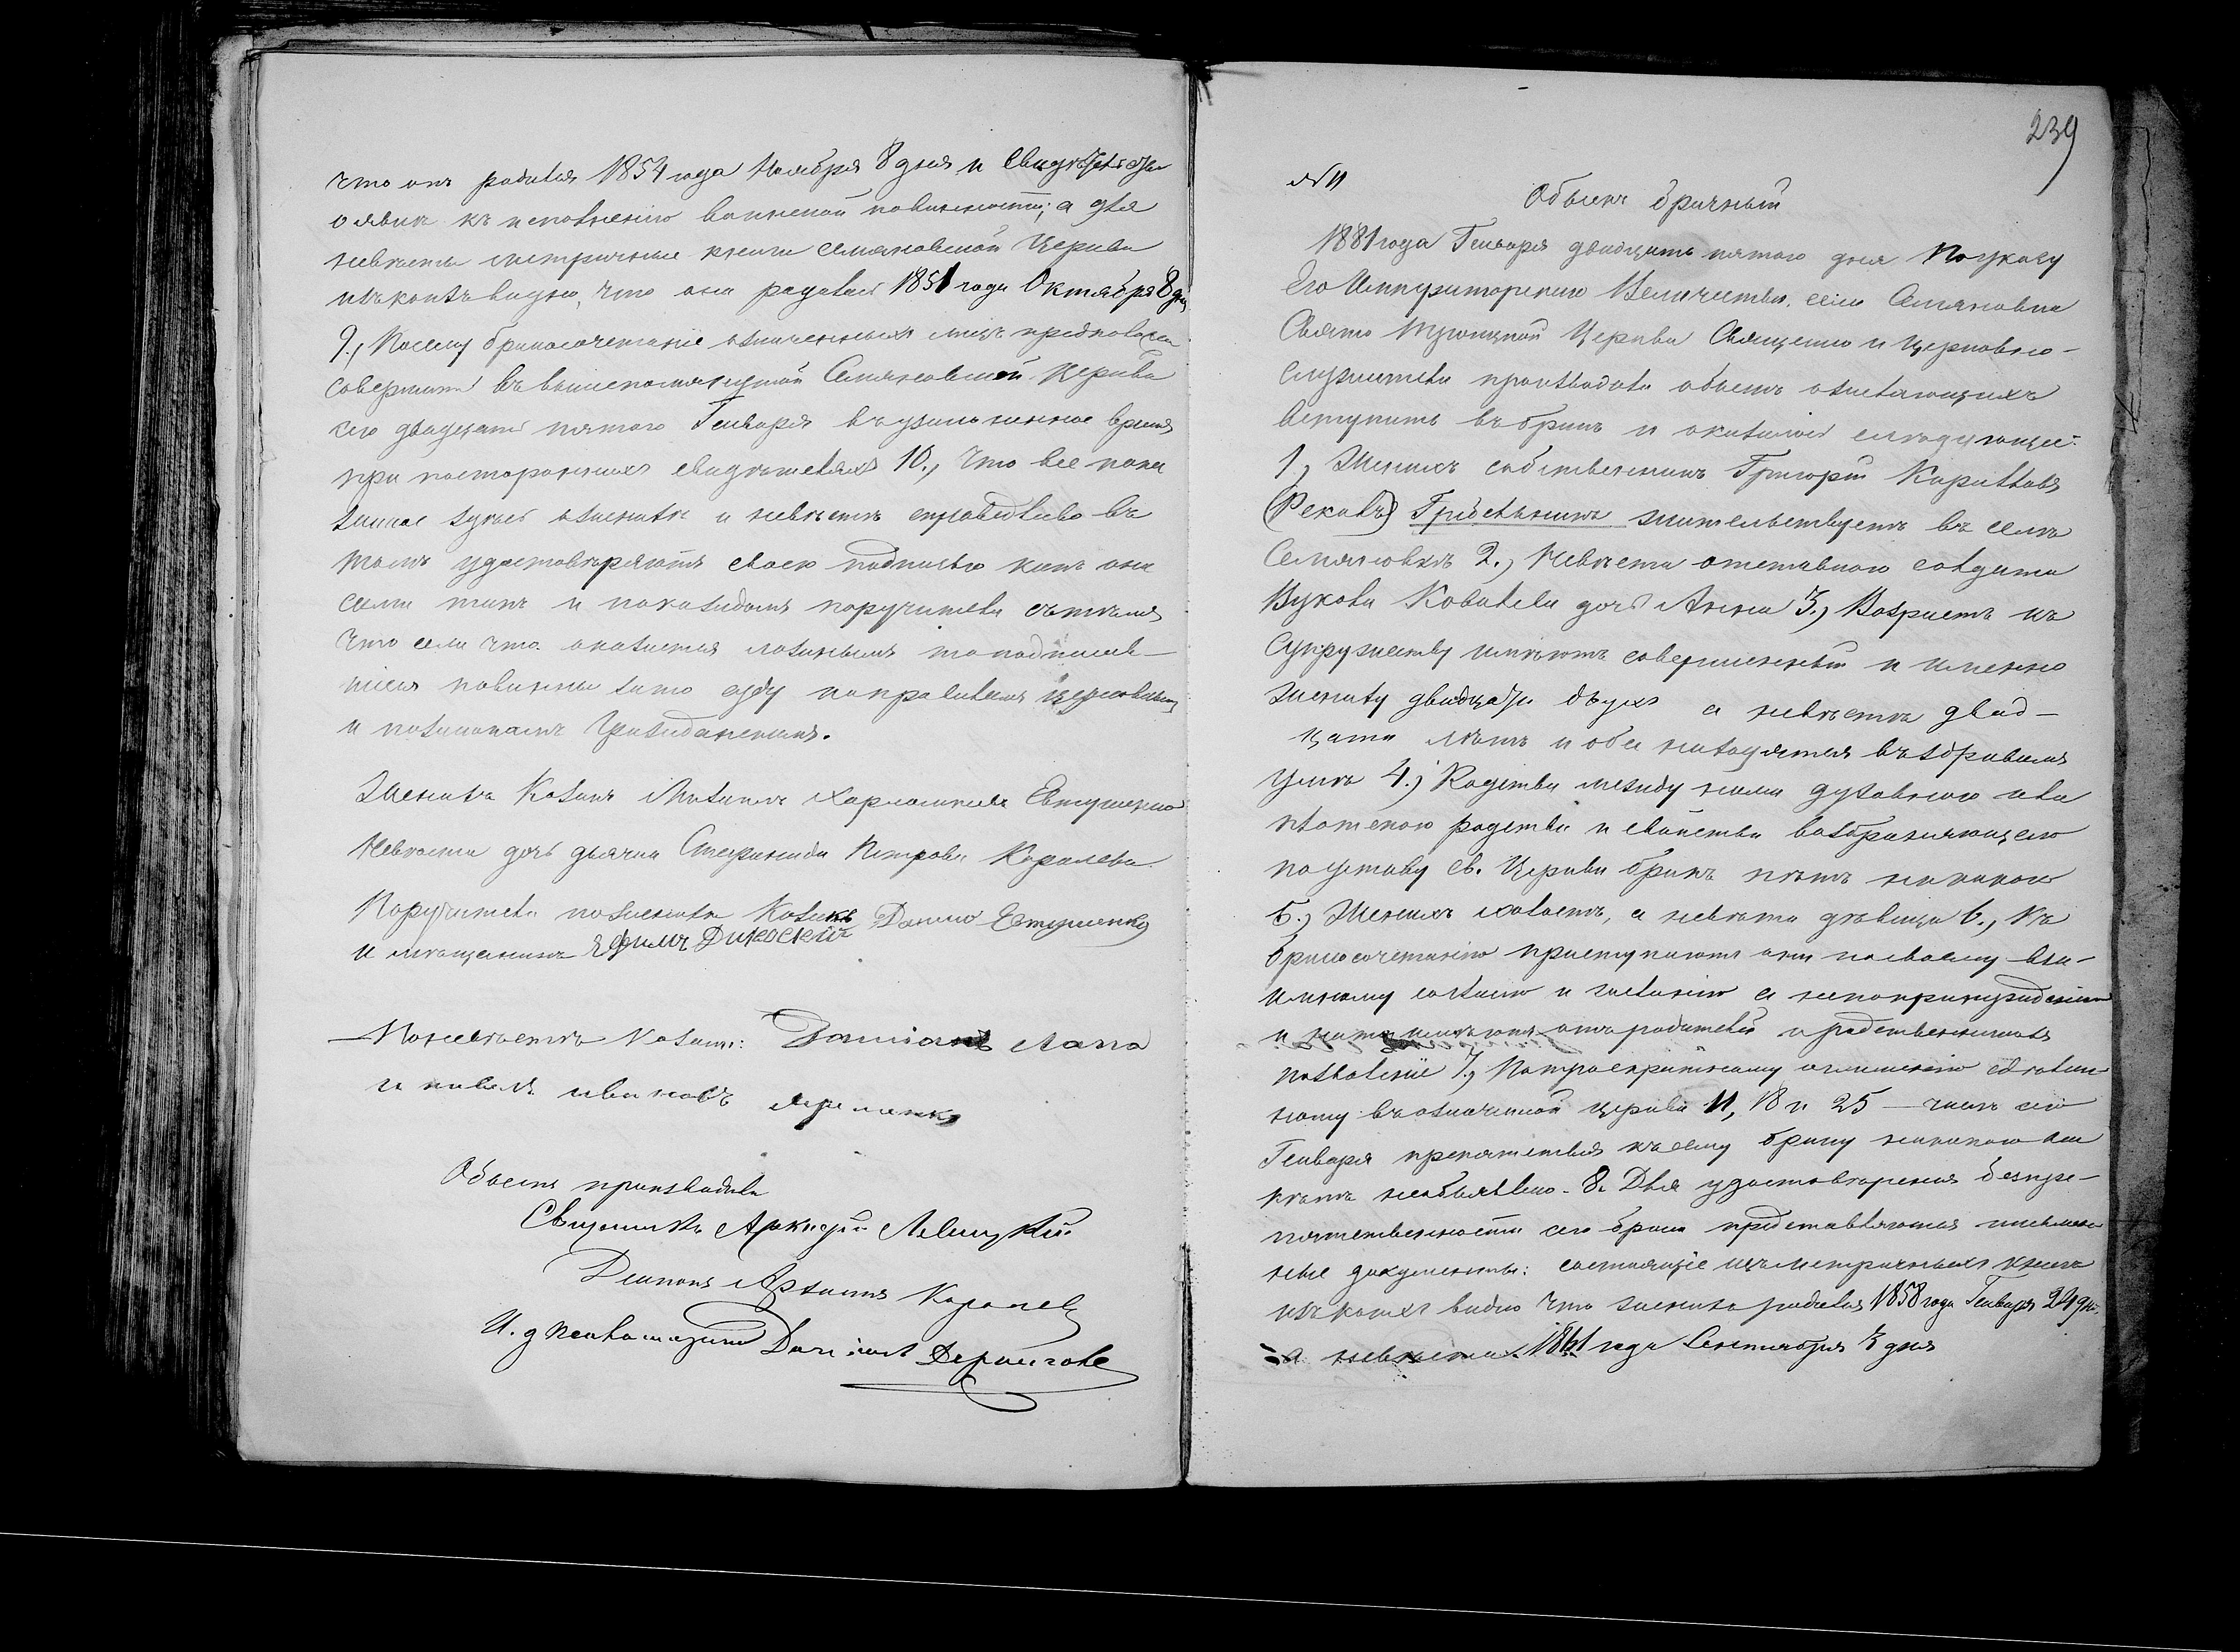 что онъ родился 1854 года Ноября 8 дня и Свидѣтельство
о явкѣ къ исполненію воинской повинности; а для
невѣсты метричные книги Семяновской Церкви
изъ коихъ видно, что она родилась 1851 года Октября 8 дня
9., Посему бракосочетаніе означенныхъ лицъ предположено
совершить въ вышепомянутой Семяновской Церкви
сего двадцать пятого Генваря въ узаконенное время
при постороннихъ свидѣтеляхъ 10., Что все пока
занное здѣсь о женихѣ и невѣстѣ справедливо въ
томъ удостовѣряютъ своею подписью какъ они
сами такъ и по каждомъ поручители съ тѣмъ
что если что окажется ложнымъ то подписав-
шіеся повинны за то суду по правиламъ церковнымъ
и по законамъ Гражданскимъ.
Женихъ Козакъ Харлампіевъ Евтушенко
Невѣста дочь дьячка Степанида Петрова Королева
Поручители по женихѣ Козакъ Данило Евтушенко
и мѣщанинъ
По невѣстѣ Козаки: Даміанъ Лапа
и павелъ ивановъ
Обыскъ производили
Священникъ Аркадій Левицкій
Діаконъ Королев
И. д псаломщика
239
№ 11
Обыскъ брачный
1881 года Генваря двадцать пятого дня По указу
Его Императорскаго Величества, села Семяновки
Свято Троицкой Церкви Священно и церковно-
служители производили обыскъ о желающихъ
вступить въ бракъ и оказалось слѣдующее:
1., Женихъ собственникъ Григорій Кирилловъ
(Рековъ) Гребенникъ жительствуетъ въ селѣ
Семяновкѣ 2., Невѣста отставного солдата
Якова Ковалева дочь Анна 3., Возрастъ къ
супружеству имѣютъ совершенный и именно
женихъ двадцати двухъ а невѣста двад-
цати лѣтъ и оба находятся въ здравомъ
умѣ 4., Родства между ними духовного или
плотского родства и свойства возбраняющаго
по уставу св. Церкви бракъ нѣтъ никакого
5., Женихъ холостъ, а невѣста дѣвица 6., Къ
бракосочетанію приступаютъ они по своему вза-
имному согласію и желанію а не по принужденію
и на то имѣютъ отъ родителей и родственниковъ
позволеніе 7., По троекратному оглашенію сдѣлан-
ному въ означенной церкви 11, 18 и 25 — числъ сего
Генваря препятствія къ сему браку никакого ни
кѣмъ необъявлено. 8. Для удостовѣренія безпре-
пятственности сего брака представляются письмен-
ные документы: состоящіе изъ метричныхъ книгъ
изъ коихъ видно что женихъ родился 1858 года Генваря 24 дня
а невѣста 1861 года Сентября 3 дня